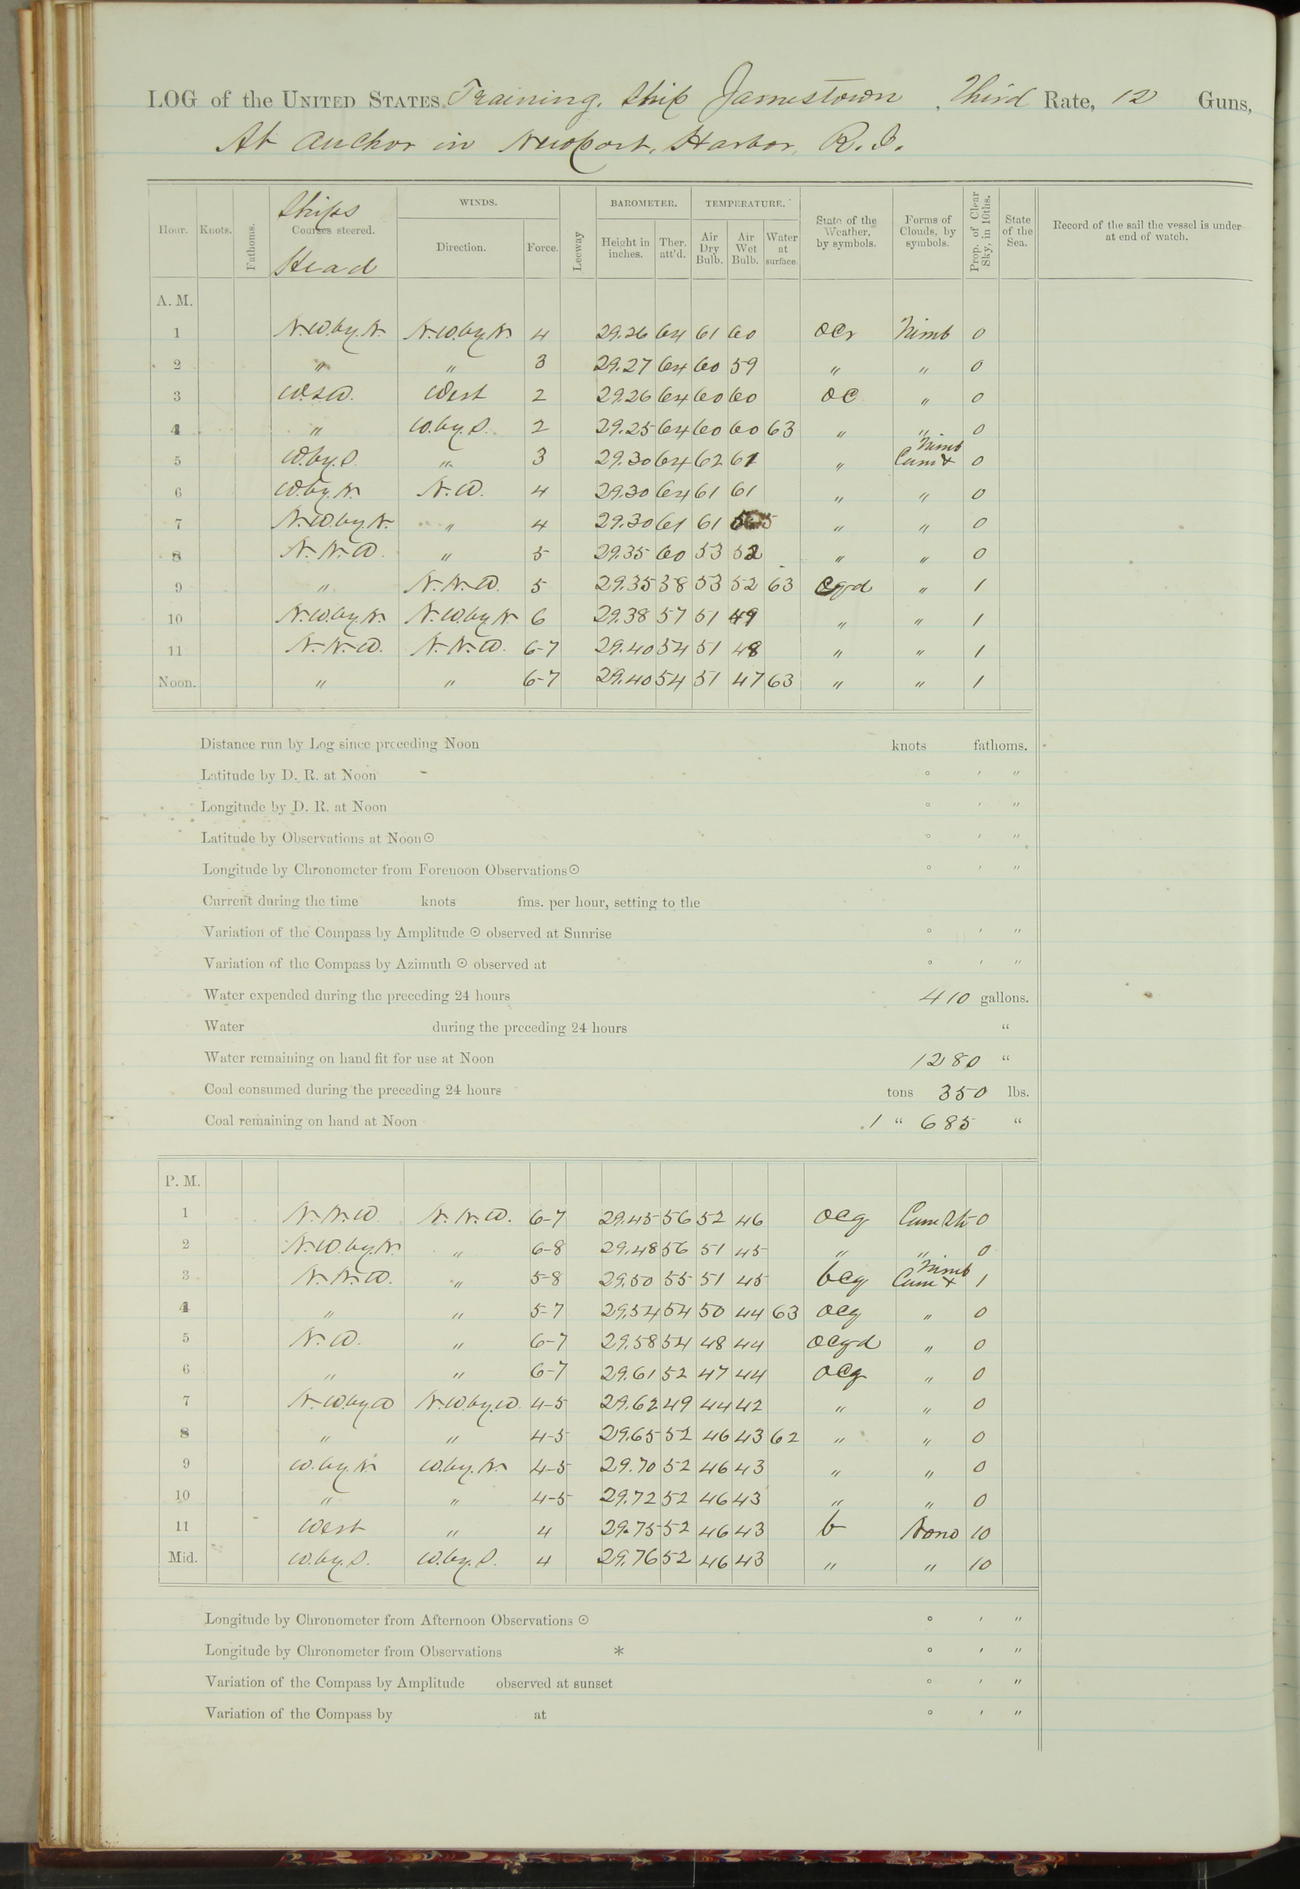 LOG of the UNITED STATES Training Ship Jamestown, Third Rate, 12 Guns,
At anchor in Newport Harbor, R.I.
Hour. Knots. Fathoms. Ships Courses steered. Head WINDS. Direction. Force. Leeway BAROMETER. Height in inches. Ther. att'd. TEMPERATURE. Air Dry Bulb. Air Wet Bulb. Water at surface. State of the Weather, by symbols. Forms of Clouds, by symbols. Prop. of Clear Sky, in 10ths. State of the Sea. Record of the sail the vessel is under at end of watch.
A. M.
1 N.W.by.N. N.W.by.N 4 29.26 64 61 60 ocr Nimb 0
2 " " 3 29.27 64 60 59 " " 0
3 W.S.W. West 2 29.26 64 60 60 oc " 0
4 " W.by.S. 2 29.25 64 60 60 63 " " 0
5 W.by.S. " 3 29.30 64 62 61 " Cum & Nimb 0
6 W.by.N. N.W. 4 29.30 64 61 61 " " 0
7 N.W.by.N. " 4 29.30 61 61 " " 0
8 N.N.W. " 5 29.35 60 53 52 " " 0
9 " N.N.W. 5 29.35 38 53 52 63 cgd " 1
10 N.W.by.N. N.W.by.N 6 29.38 57 51 49 " " 1
11 N.N.W. N.N.W. 6-7 29.40 54 51 48 " " 1
Noon. " " 6-7 29.40 54 51 47 63 " " 1
Distance run by Log since preceding Noon knots fathoms.
Latitude by D. R. at Noon ° ' "
Longitude by D. R. at Noon ° ' "
Latitude by Observations at Noon ☉ ° ' "
Longitude by Chronometer from Forenoon Observations ☉ ° ' "
Current during the time knots fms. per hour, setting to the
Variation of the Compass by Amplitude ☉ observed at Sunrise ° ' "
Variation of the Compass by Azimuth ☉ observed at ° ' "
Water expended during the preceding 24 hours 410 gallons.
Water during the preceding 24 hours "
Water remaining on hand fit for use at Noon 1280 "
Coal consumed during the preceding 24 hours tons 350 lbs.
Coal remaining on hand at Noon 1 " 685 "
P. M.
1 N.N.W. N.N.W. 6-7 29.45 56 52 46 ocq Cum 0
2 N.W.by.N. " 6-8 29.48 56 51 45 " " 0
3 N.N.W. " 5-8 29.50 55 51 45 bcq Cum & Nimb 1
4 " " 5-7 29.54 54 50 44 63 ocq " 0
5 N.W. " 6-7 29.58 54 48 44 ocqd " 0
6 " " 6-7 29.61 52 47 44 ocq " 0
7 N.W.by.W N.W.by.W. 4-5 29.62 49 44 42 " " 0
8 " " 4-5 29.65 52 46 43 62 " " 0
9 W.by.N W.by.N. 4-5 29.70 52 46 43 " " 0
10 " " 4-5 29.72 52 46 43 " " 0
11 West " 4 29.75 52 46 43 b None 10
Mid. W.by.S. W.by.S. 4 29.76 52 46 43 " " 10
Longitude by Chronometer from Afternoon Observations ☉ ° ' "
Longitude by Chronometer from Observations * ° ' "
Variation of the Compass by Amplitude observed at sunset ° ' "
Variation of the Compass by at ° ' "